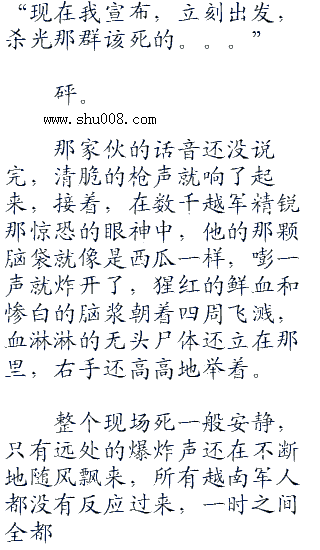 “现在我宣布，立刻出发，
杀光那群该死的。。。”
砰。
www.shu008.com
那家伙的话音还没说
完，清脆的枪声就响了起
来，接着，在数千越军精锐
那惊恐的眼神中，他的那颗
脑袋就像是西瓜一样，嘭一
声就炸开了，猩红的鲜血和
惨白的脑浆朝着四周飞溅，
血淋淋的无头尸体还立在那
里，右手还高高地举着。
整个现场死一般安静，
只有远处的爆炸声还在不断
地随风飘来，所有越南军人
都没有反应过来，一时之间
全都